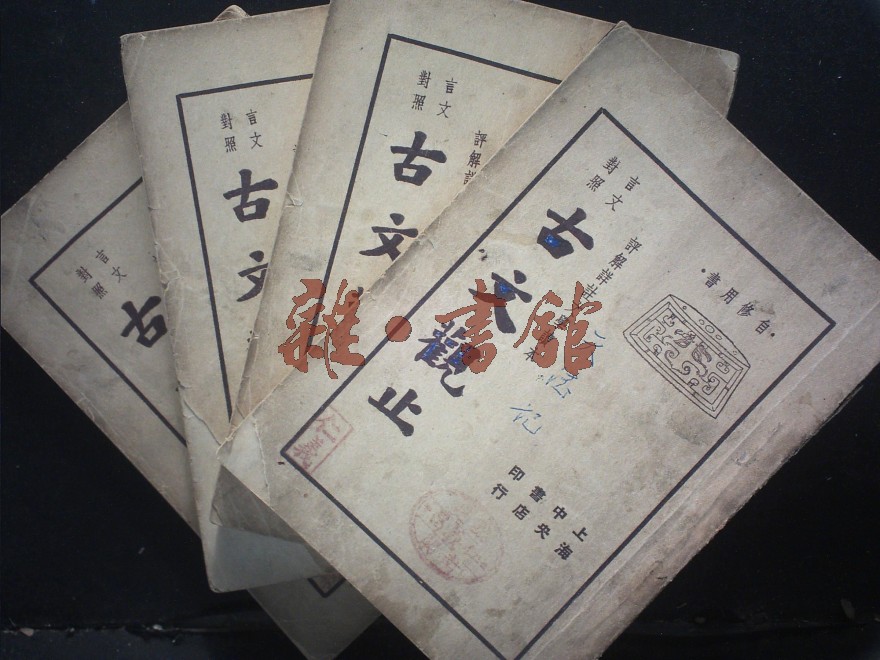 言文
對照
古
言文
對照
古文
言文
對照
評解詳
古文
自修用書
評解詳註
本
言文
對照
古文觀止
上海
中央
書店
印行
仁義
雜·書館